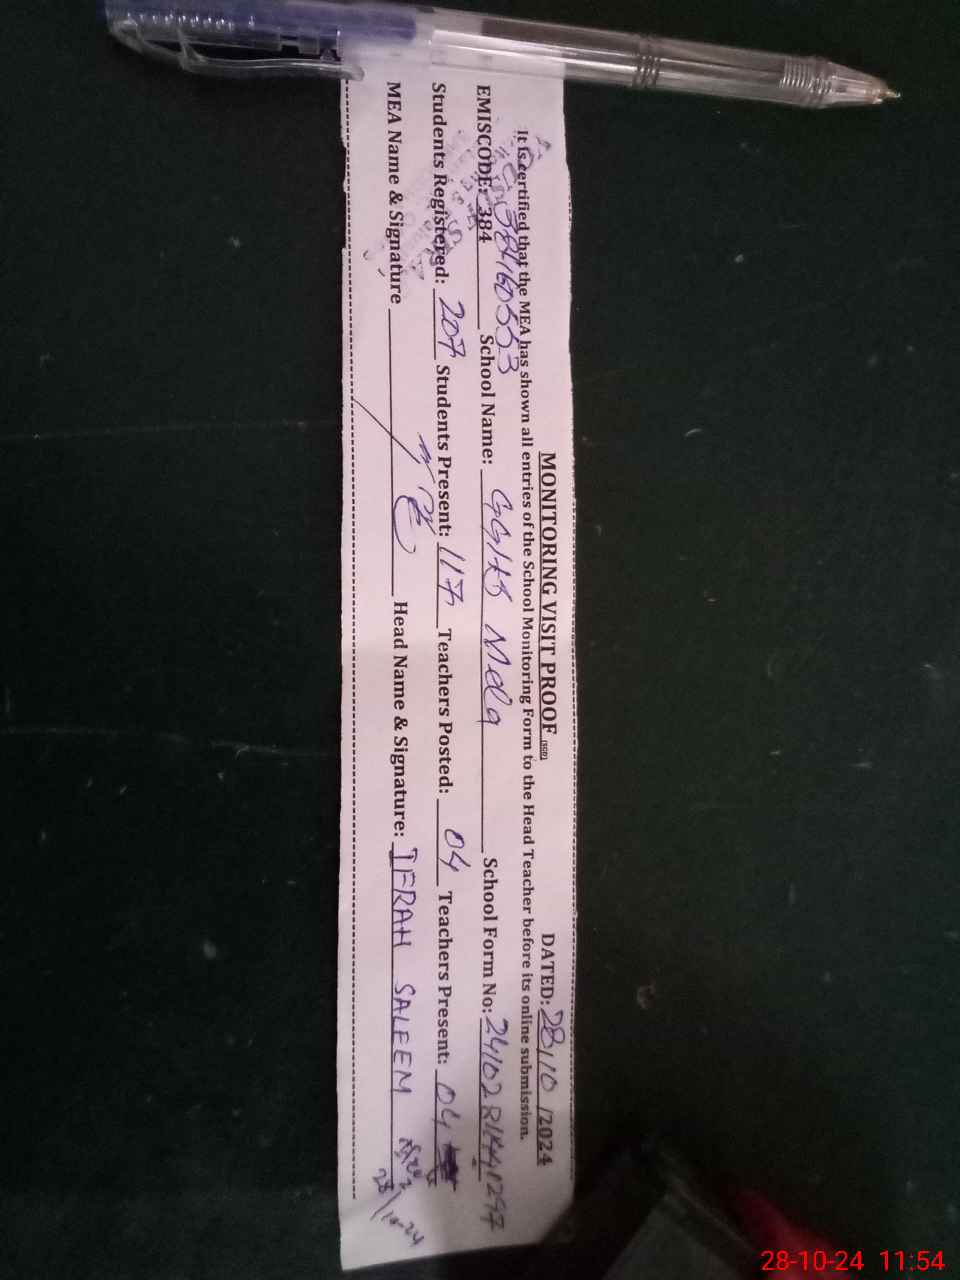 MONITORING VISIT PROOF (SED) DATED: 28/10/2024
It is certified that the MEA has shown all entries of the School Monitoring Form to the Head Teacher before its online submission.
EMISCODE: 384 38460553 School Name: GGHS Mela School Form No:
Students Registered: 207 Students Present: 117 Teachers Posted: 04 Teachers Present: 04
MEA Name & Signature Head Name & Signature: IFRAH SALEEM
28/10-24
28-10-24 11:54